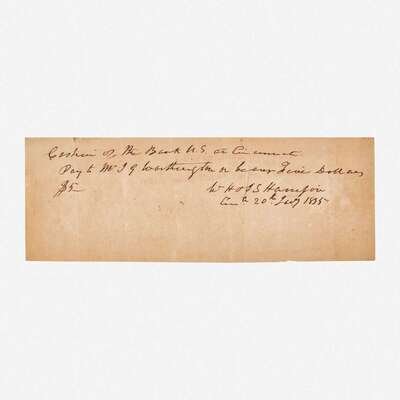 Cashier of the Bank U.S. at Cincinnati
Pay to Mr J G Worthington or bearer Five Dollars
$5— Wm H & S Harrison
Cin. 20th July 1835